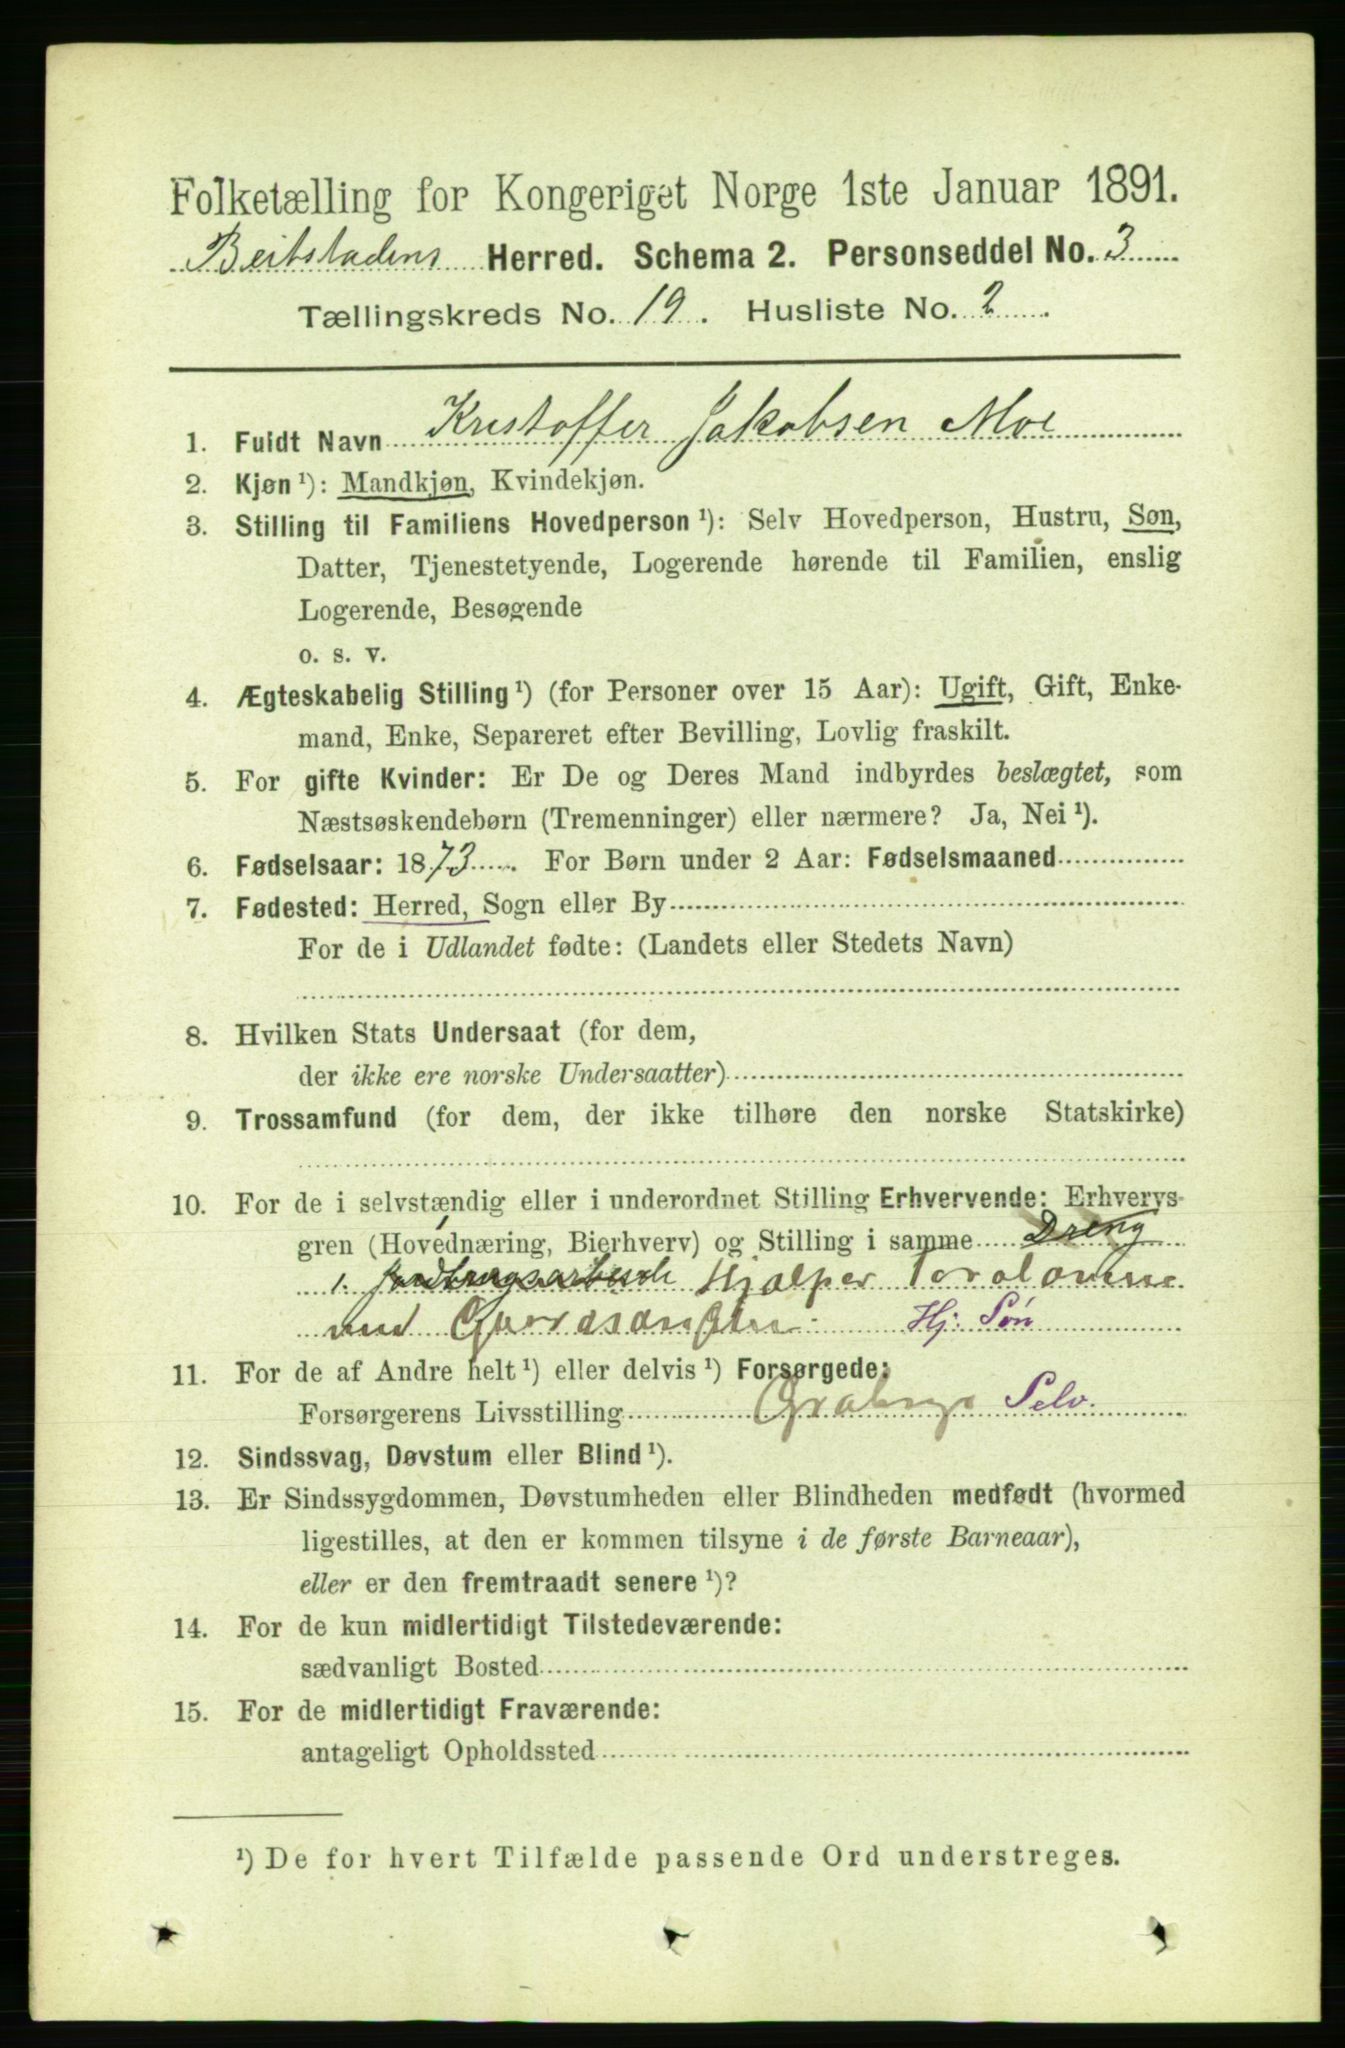 Folketælling for Kongeriget Norge 1ste Januar 1891.
Beitstadens Herred. Schema 2. Personseddel No. 3
Tællingskreds No. 19. Husliste No. 2.
1. Fuldt Navn Kristoffer Jakobsen Moe
2. Kjøn ¹): Mandkjøn, Kvindekjøn.
3. Stilling til Familiens Hovedperson ¹): Selv Hovedperson, Hustru, Søn,
Datter, Tjenestetyende, Logerende hørende til Familien, enslig
Logerende, Besøgende
o. s. v.
4. Ægteskabelig Stilling ¹) (for Personer over 15 Aar): Ugift, Gift, Enke-
mand, Enke, Separeret efter Bevilling, Lovlig fraskilt.
5. For gifte Kvinder: Er De og Deres Mand indbyrdes beslægtet, som
Næstsøskendebørn (Tremenninger) eller nærmere? Ja, Nei ¹).
6. Fødselsaar: 1873. For Børn under 2 Aar: Fødselsmaaned
7. Fødested: Herred, Sogn eller By
For de i Udlandet fødte: (Landets eller Stedets Navn)
8. Hvilken Stats Undersaat (for dem,
der ikke ere norske Undersaatter)
9. Trossamfund (for dem, der ikke tilhøre den norske Statskirke)
10. For de i selvstændig eller i underordnet Stilling Erhvervende: Erhvervs-
gren (Hovednæring, Bierhverv) og Stilling i samme Dreng
Hjælper
med Hj. Søn
11. For de af Andre helt ¹) eller delvis ¹) Forsørgede:
Forsørgerens Livsstilling Selv.
12. Sindssvag, Døvstum eller Blind ¹).
13. Er Sindssygdommen, Døvstumheden eller Blindheden medfødt (hvormed
ligestilles, at den er kommen tilsyne i de første Barneaar),
eller er den fremtraadt senere ¹)?
14. For de kun midlertidigt Tilstedeværende:
sædvanligt Bosted
15. For de midlertidigt Fraværende:
antageligt Opholdssted
¹) De for hvert Tilfælde passende Ord understreges.